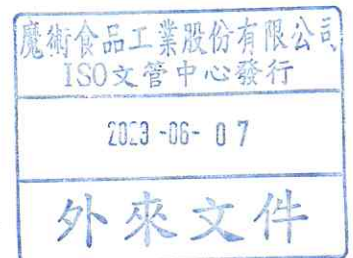 魔術食品工業股份有限公司
ISO文管中心發行
2023-06-07
外來文件